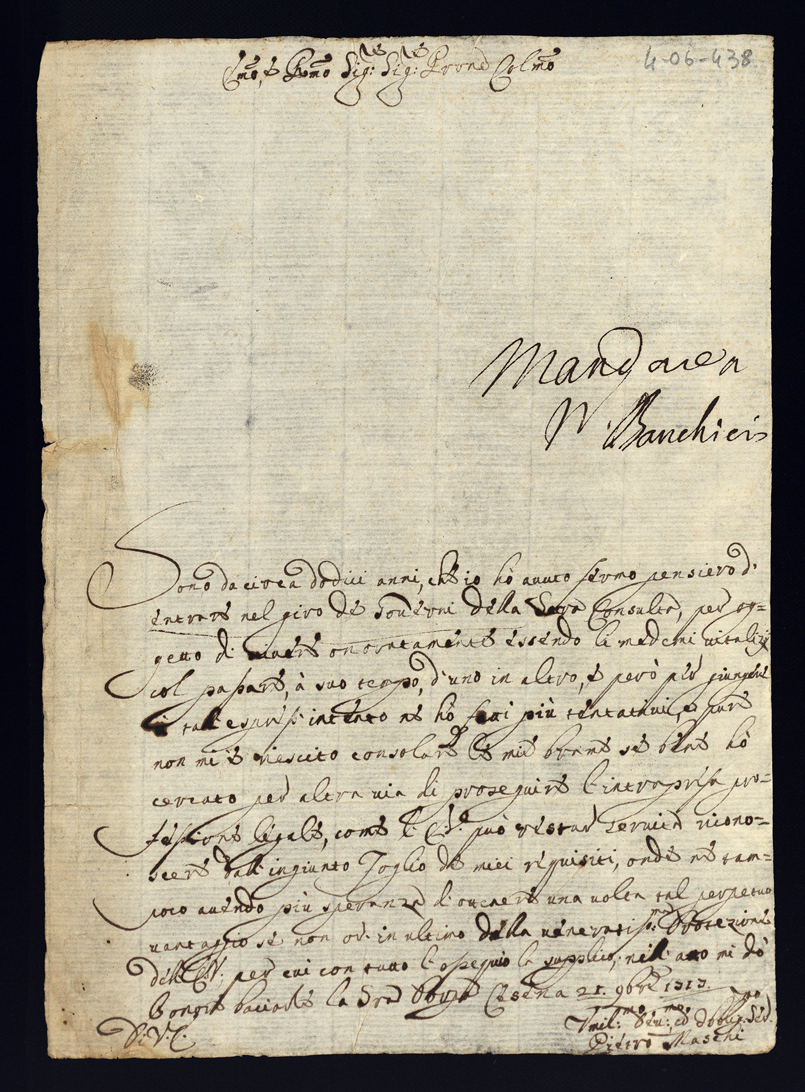 4-06-438
Emo, e Rmo Sig: Sig: Prone Colmo
Banchieri
Sono da circa dodici anni, che io hò auuto fermo pensiero d'
entrare nel giro de Gouerni della Sacra Consulta, per og=
getto di uiuere onoratamente essendo li medemi uitalizij
col passare, à suo tempo, d'uno in altro, e però per giungere
à tal espressi intento ne hò fatti più tentatiui, e pure
non mi è riescito consolare le mie brame se bene hò
cercato per altra uia di proseguire l'intrapresa pro=
fessione legale, come l'E.V. può restar seruita ricono=
scere dall'ingiunto Foglio de miei requisiti, onde ne tam=
poco auendo più speranza di ottenere una uolta tal perpetuo
uantaggio se non or in ultimo della ueneratissma Protezione
dell'E.V. per cui con tutto l'ossequio la supplico, nell'atto mi dò
l'onore baciarle la Sra Cesena 21. 9bre 1713.
Di V.E.
Vmil:mo Seu:, ed Oblig. Ser.
Pietro Maschi